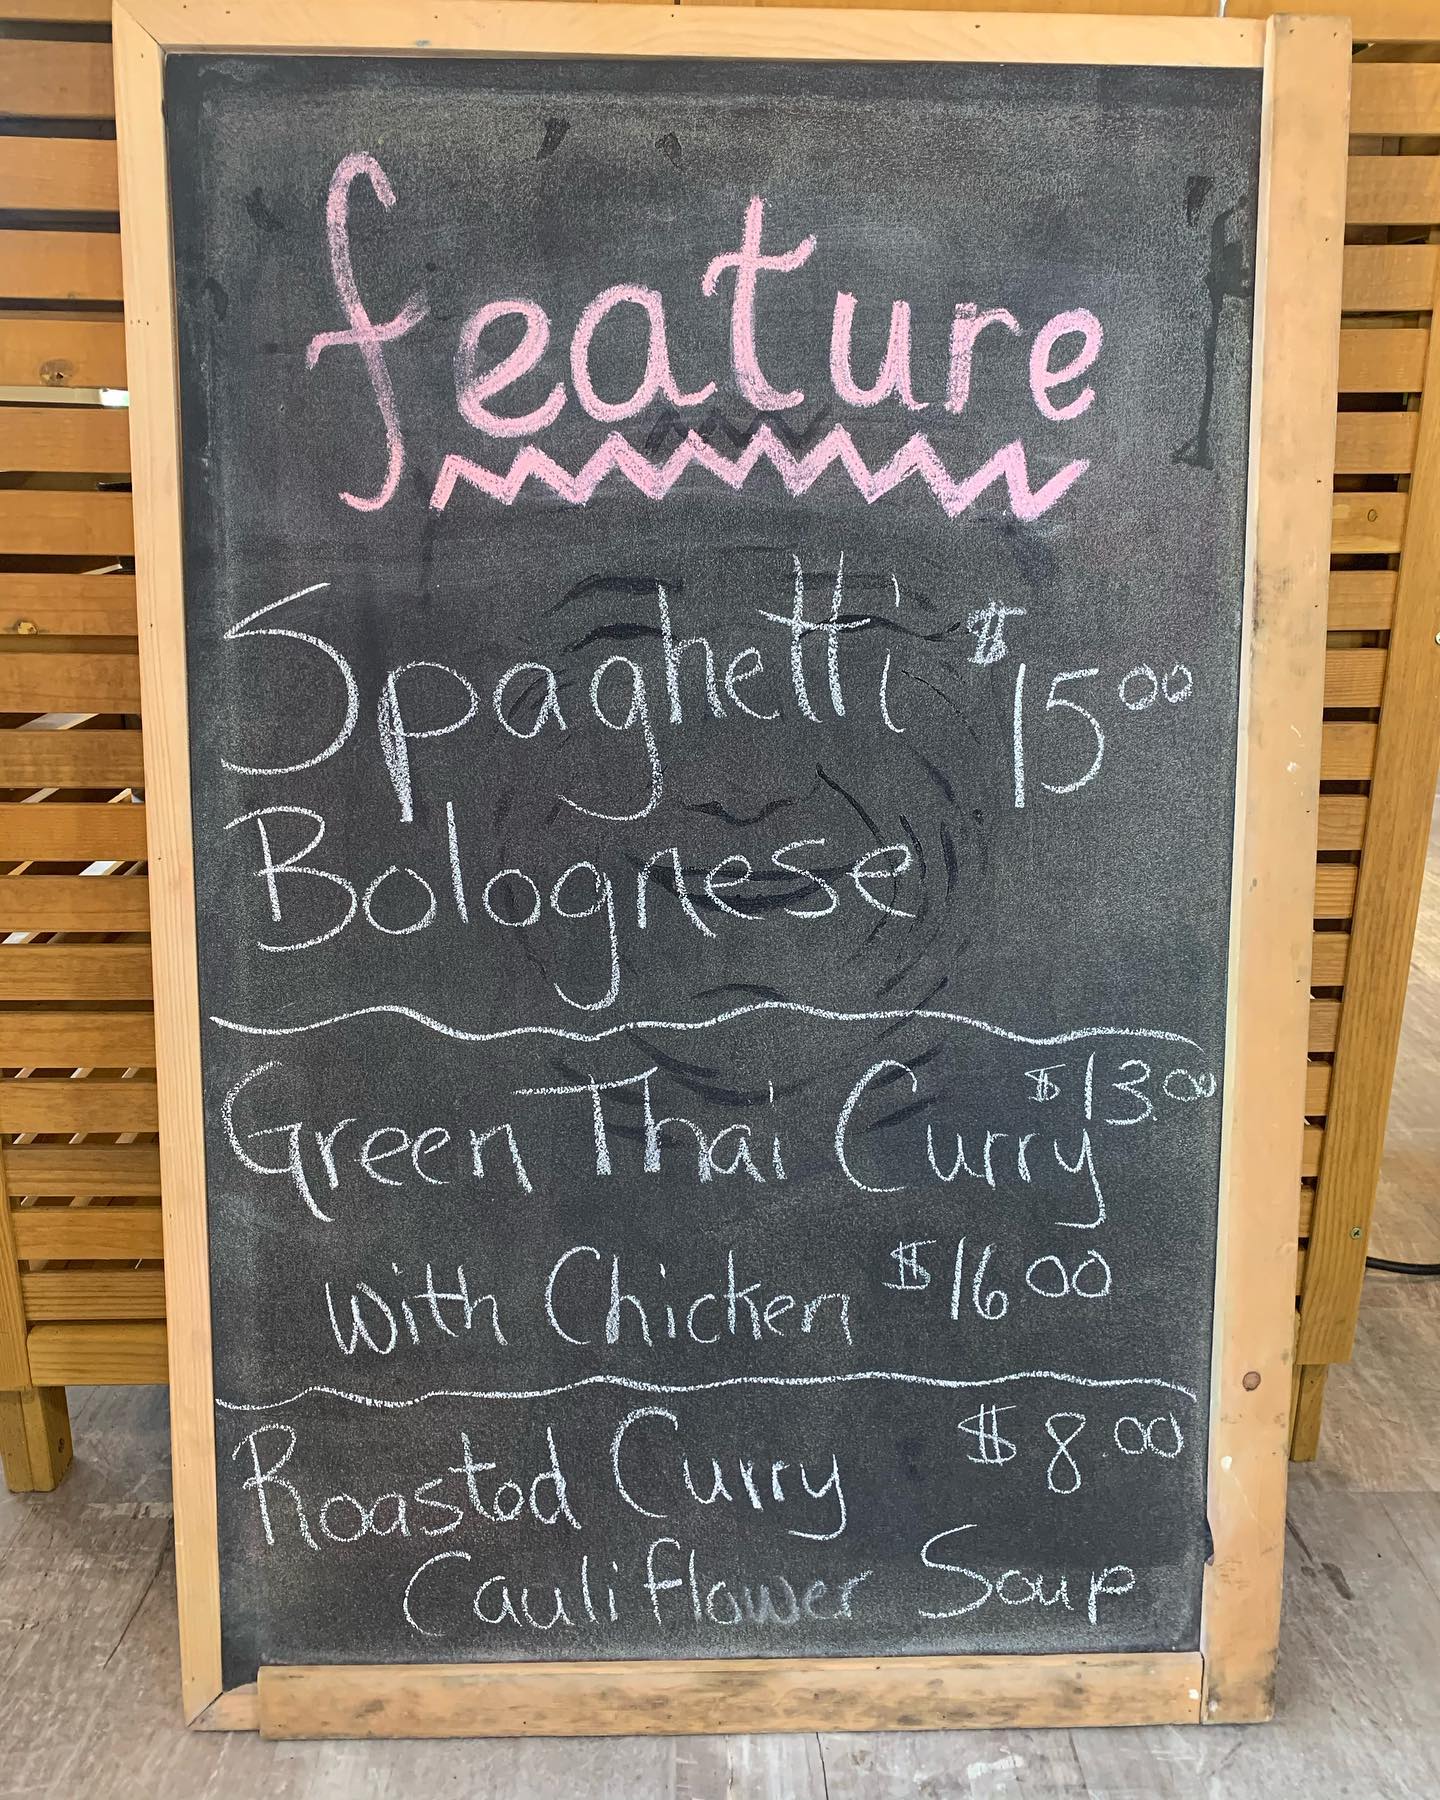 feature
Spaghetti $15.00
Bolognese
Green Thai Curry $13.00
with Chicken $16.00
Roasted Curry $8.00
Cauliflower Soup